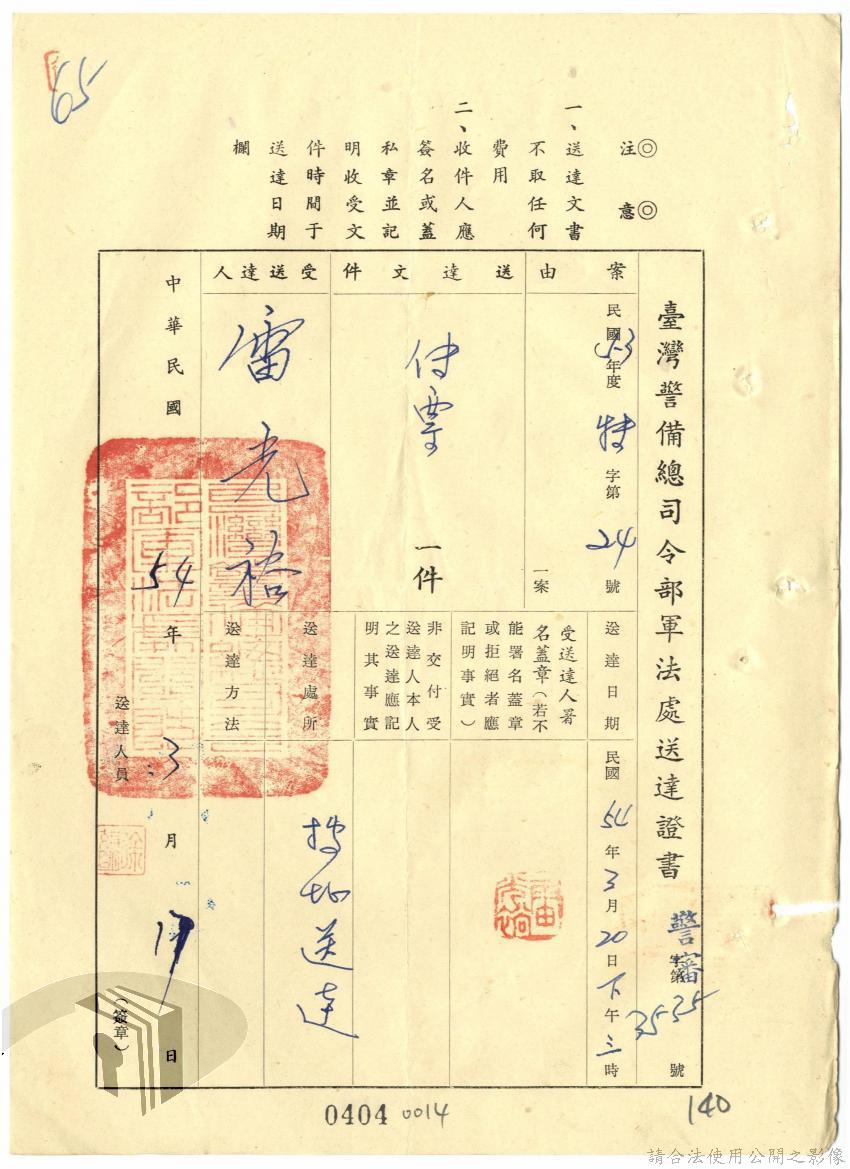 65
◎注意◎
一、送達文書
不取任何
費用
二、收件人應
簽名或蓋
私章並記
明收受文
件時間于
送達日期
欄
臺灣警備總司令部軍法處送達證書
警審字第3535號
案由
民國53年度特字第24號
一案
送達文件
傳票
一件
受送達人
雷光裕
送達日期
民國54年3月20日下午三時
受送達人署
名蓋章(若不
能署名蓋章
或拒絕者應
記明事實)
非交付受
送達人本人
之送達應記
明其事實
送達處所
按址送達
送達方法
中華民國54年3月17日
送達人員
(簽章)
0404 0014
140
請合法使用公開之影像